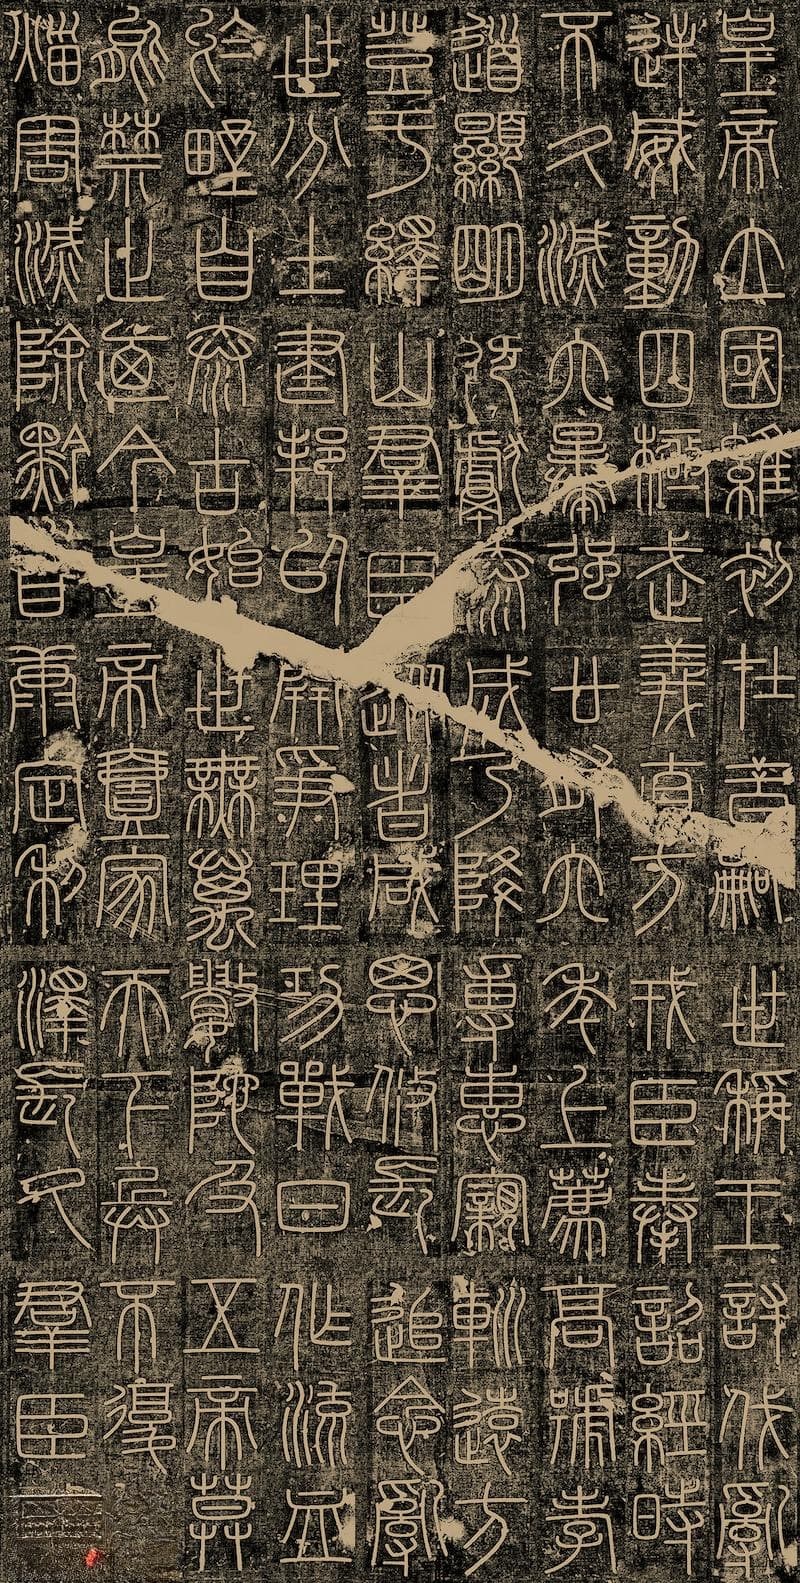 皇帝立國維初在昔嗣世稱王討伐亂
逆威動四極武義直方戎臣奉詔經時
不久滅六暴強廿有六年上薦高號孝
道顯明既獻泰成乃降專惠親巡遠方
登于繹山群臣從者咸思攸長追念亂
世分土建邦以開爭理功戰日作流血
於野自泰古始世無萬數陀及五帝莫
能禁止迺今皇帝壹家天下兵不復
災害滅除黔首康定利澤長久群臣